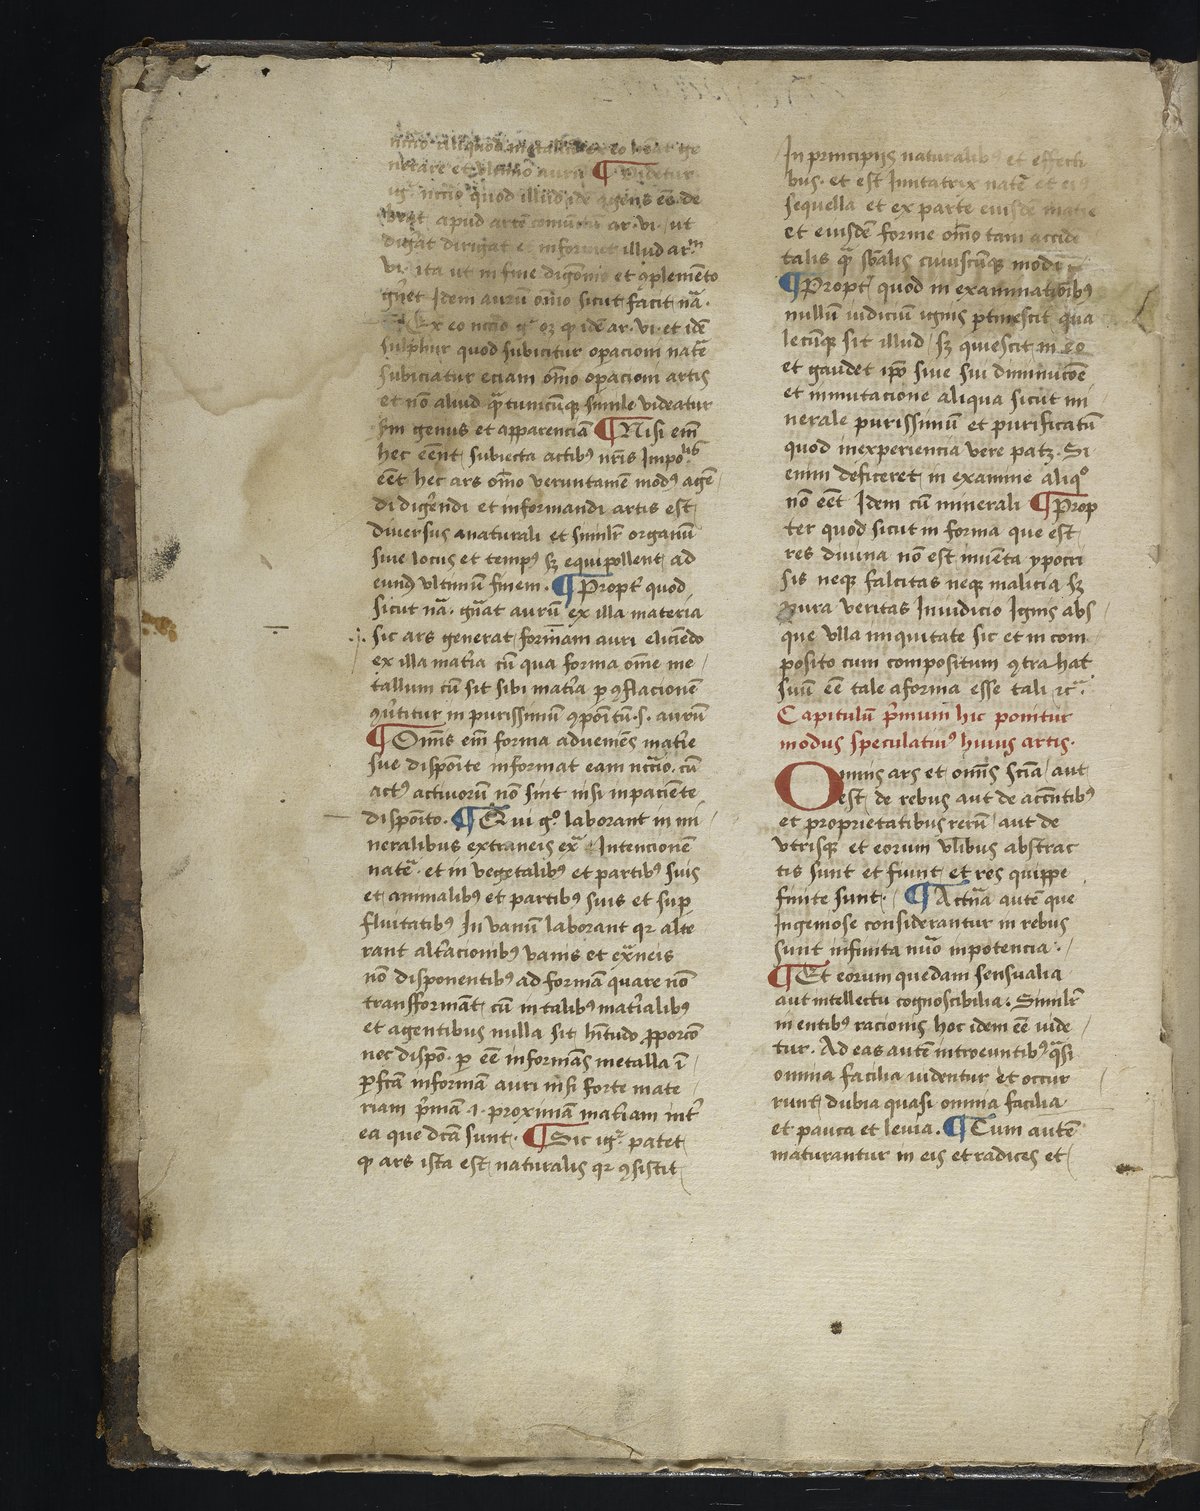 nerare et ultimo aurū ¶ Videtur
igr̄ nc̄cio quod illud idē agens eē de
apud artē ar. vi. ut
digāt dirigat et informet illud ar.m
vi. ita ut in fine digōnis et ꝯplemēto
gn̄et idem aurū om̄io sicut facit nā.
¶ Ex eo nc̄cio gͥ oꝫ ꝙ idē ar. vi. et idē
sulphur quod subicitur opacioni natē
subiciatur eciam om̄io opacioni artis
et nō aliud qͣtumcūqꝫ simile videatur
sm̄ genus et apparenciā ¶ Nisi em̄
hec eēnt subiecta actibꝰ nr̄is Impoˡⁱˢ
eēt hec ars om̄io veruntamē modꝰ agē
di digēndi et informandi artis est
diversus a naturali et similr̄ organū
sive locus et tempꝰ sꝫ equipollent ad
eundē ultimū finem. ¶ Propt̄ quod
sicut nā. gn̄at aurū ex illa materia
sic ars generat formam auri eliciēdo
ex illa mat̄ia cū qua forma om̄e me
tallum cū sit sibi mat̄ia p ꝯflacionē
ꝯūtitur in purissimū ꝯpoītū .s. aurū
¶ Om̄is em̄ forma adveniēs mat̄ie
sue dispoīte informat eam nc̄cio. cū
actꝰ activorū nō sint nisi in paciēte
dispoīto. ¶ Qui gͦ laborant in mi
neralibus extraneis ex̄ Intencionē
natē. et in vegetalibꝰ et partibꝰ suis
et animalibꝰ et partibꝰ suis et sup
fluitatibꝰ In vanū laborant qr alte
rant alt̄acionibꝰ vanis et ex̄neis
nō disponentibꝰ ad formā quare nō
transformāt cū in talibꝰ mat̄ialibꝰ
et agentibus nulla sit hītudo ꝓporcō
nec dispō. ꝑ eē informās metalla ī
ꝑfc̄am in formā auri nisi forte mate
riam p̄mā .i. proximā mat̄iam int̄
ea que dc̄a sunt. ¶ Sic igr̄ patet
ꝙ ars ista est naturalis qr ꝯsistit
In principijs naturalibꝰ et effecti
bus. et est Imitatrix natē et eiꝰ
sequella et ex parte eiusdē mat̄ie
et eiusdē forme om̄io tam accidē
talis qͣ sb̄alis cuiuscūqꝫ modi
¶ Propt̄ quod in examinationibꝰ
nullū iudiciū ignis ptimescit qua
lecūqꝫ sit illud sꝫ quiescit in eo
et gaudet ip̄o sine sui diminucōe
et inmutacione aliqua sicut mi
nerale purissimū et purificatū
quod in experiencia vere patꝫ. Si
enim deficeret in examine aliqͦ
nō eēt Idem cū minerali ¶ Prop
ter quod sicut in forma que est
res divina nō est inventa ypocri
sis neqꝫ falcitas neqꝫ malicia sꝫ
pura veritas In iudicio Ignis abs
que ulla iniquitate sic et in com
posito cum compositum ꝯtrahat
suū eē tale a forma esse tali ꝛcͣ.
Capitulū p̄mum hic ponitur
modus speculativꝰ huius artis.
Omnis ars et om̄is scīa aut
est de rebus aut de acc̄ntibꝰ
et proprietatibus rerū aut de
utrisqꝫ et eorum vl̄ibus abstrac
tis sunt et fiunt et res quippe
finite sunt. ¶ Actūa autē que
Ingeniose considerantur in rebus
sunt infinita nūo in potencia.
¶ Et eorum quedam sensualia
aut intellectu cognoscibilia. Similr̄
in entibꝰ racionis hoc idem eē vide
tur. Ad eas autē introeuntibꝰ qͣsi
omnia facilia videntur et occur
runt dubia quasi omnia facilia
et pauca et levia. ¶ Cum autē
maturantur in eis et radices et